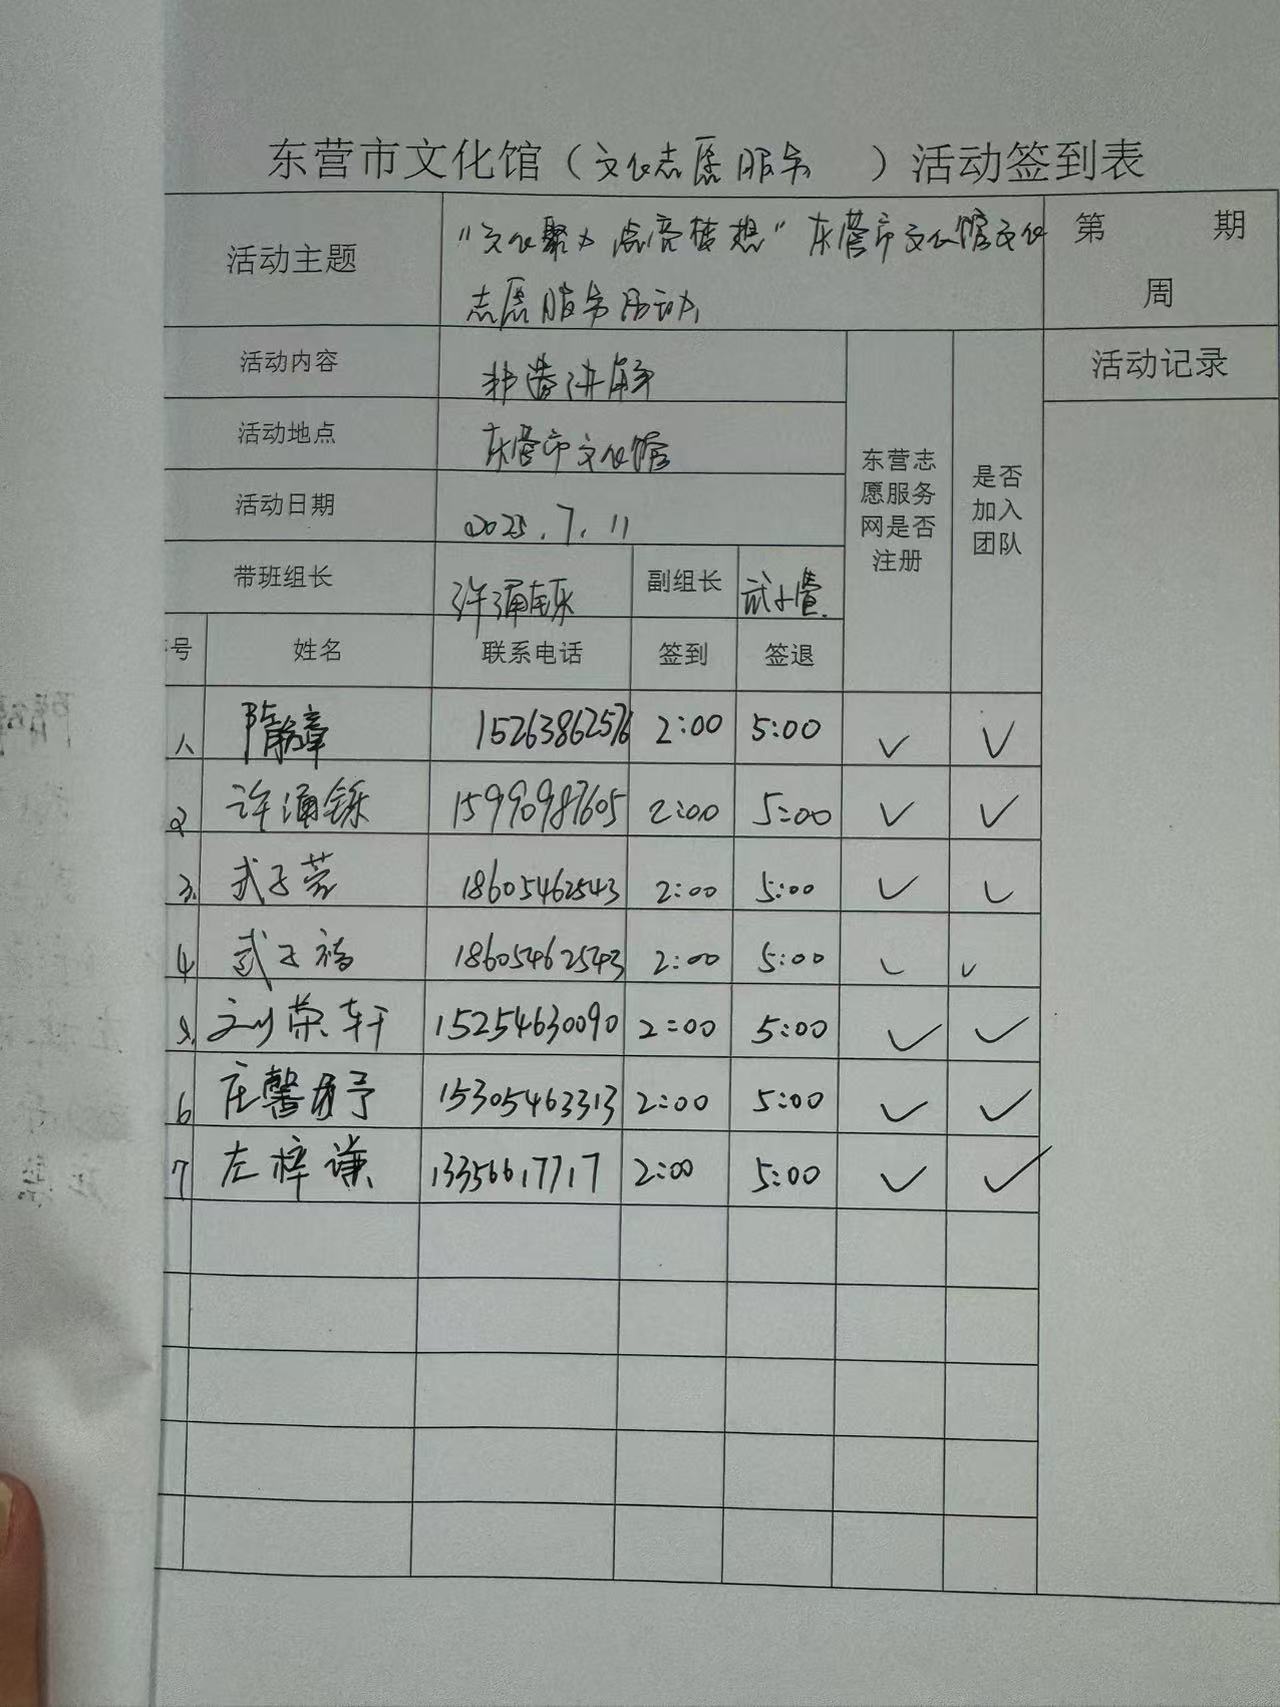 东营市文化馆（文化志愿服务 ）活动签到表
活动主题
"文化聚力 点亮梦想"东营市文化馆文化
志愿服务活动
第 期
周
活动内容 非遗讲解
活动地点 东营市文化馆
活动日期 2025.7.11
带班组长 许涌铄 副组长 武子萱
东营志
愿服务
网是否
注册
是否
加入
团队
活动记录
号 姓名 联系电话 签到 签退
1、 隋韵章 15263862576 2:00 5:00 ✓ ✓
2 许涌铄 15990987605 2:00 5:00 ✓ ✓
3. 武子萱 18605462543 2:00 5:00 ✓ ✓
4. 武子禧 18605462543 2:00 5:00 ✓ ✓
5. 刘荣轩 15254630090 2:00 5:00 ✓ ✓
6 庄馨予 15305463313 2:00 5:00 ✓ ✓
7 左梓谦 13356617717 2:00 5:00 ✓ ✓